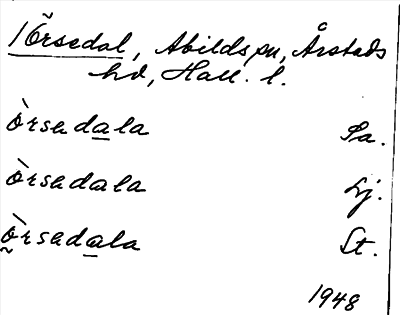 /Örsedal, Abilds sn, Årstads
hd, Hall. l.
ò̀rsadala Sa.
òrsadala Lj.
òrsadala St.
1948